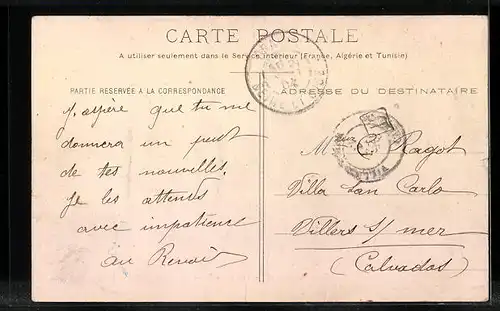 CARTE POSTALE
A utiliser seulement dans le Service intérieur (France, Algérie et Tunisie)
PARTIE RÉSERVÉE A LA CORRESPONDANCE
J'espère que tu me
donnera un peut
de tes nouvelles.
Je les attends
avec impatience
au Revoir
ADRESSE DU DESTINATAIRE
Ragot
Villa san Carlo
Villers s/ mer
(Calvados)